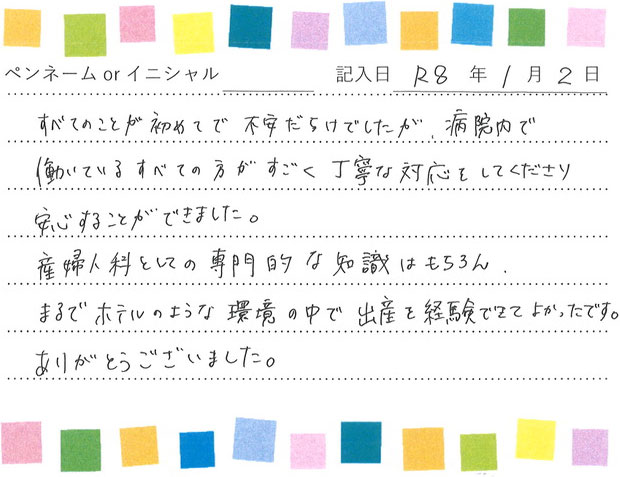 ペンネームorイニシャル 記入日 R8 年 1 月 2 日
すべてのことが初めてで不安だらけでしたが、病院内で
働いているすべての方がすごく丁寧な対応をしてくださり
安心することができました。
産婦人科としての専門的な知識はもちろん、
まるでホテルのような環境の中で出産を経験できてよかったです。
ありがとうございました。